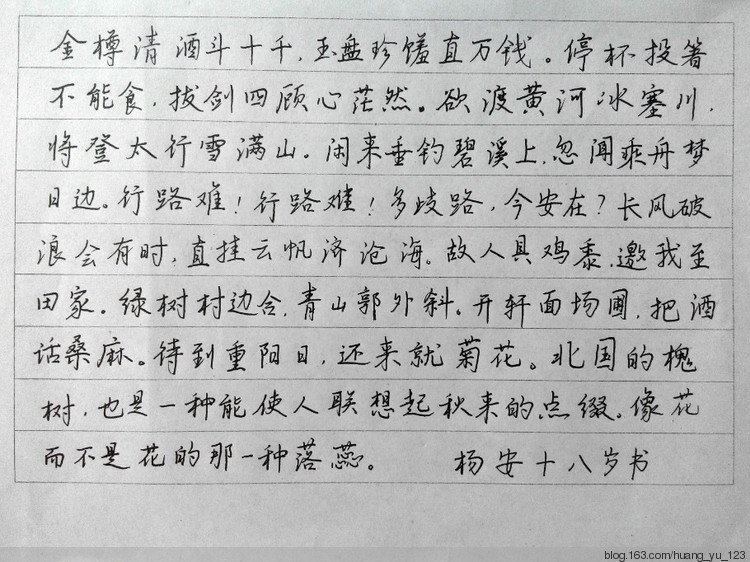 金樽清酒斗十千,玉盘珍馐直万钱。停杯投箸
不能食,拔剑四顾心茫然。欲渡黄河冰塞川,
将登太行雪满山。闲来垂钓碧溪上,忽闻乘舟梦
日边。行路难!行路难!多歧路,今安在?长风破
浪会有时,直挂云帆济沧海。故人具鸡黍,邀我至
田家。绿树村边合,青山郭外斜。开轩面场圃,把酒
话桑麻。待到重阳日,还来就菊花。北国的槐
树,也是一种能使人联想起秋来的点缀。像花
而不是花的那一种落蕊。 杨安十八岁书
blog.163.com/huang_yu_123